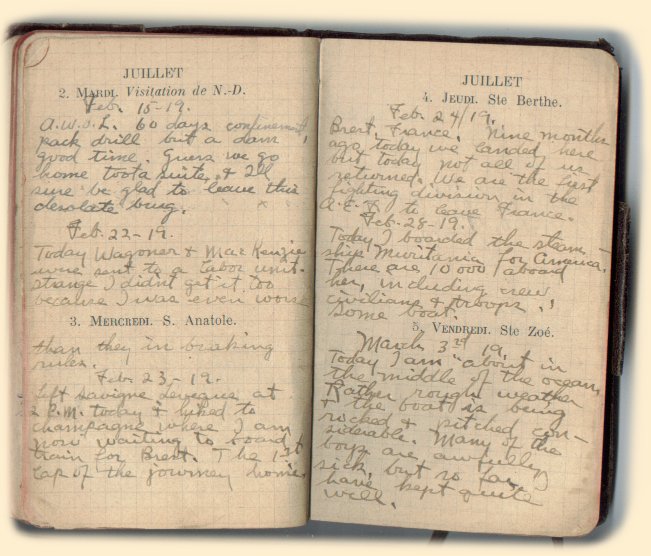 JUILLET
2. MARDI. Visitation de N.-D.
Feb. 15-19.
A.W.O.L. 60 days confinement,
pack drill but a damn
good time. Guess we go
home toota suite, & I'll
sure be glad to leave this
desolate burg.
Feb. 22-19.
Today Wagoner & MacKenzie
were sent to a labor unit.
Strange I didnt get it too
because I was even worse
3. MERCREDI. S. Anatole.
than they in breaking
rules.
Feb. 23-19.
Left Savigne Leveque at
2 P.M. today & hiked to
Champagne where I am
now waiting to board a
train for Brest. The 1st
lap of the journey home.
JUILLET
4. JEUDI. Ste Berthe.
Feb. 24/19.
Brest, France. Nine months
ago today we landed here
but today not all of us
returned. We are the first
fighting division in the
A.E.F. to leave France.
Feb. 28-19.
Today I boarded the steam-
ship Muritania for America.
There are 10 000 aboard
her, including crew
civilians & troops.
Some boat!
5. VENDREDI. Ste Zoé.
March 3rd 19.
Today I am about in
the middle of the ocean
Rather rough weather
& the boat is being
rocked & pitched con-
siderable. Many of the
boys are awfully
sick, but so far I
have kept quite
well.